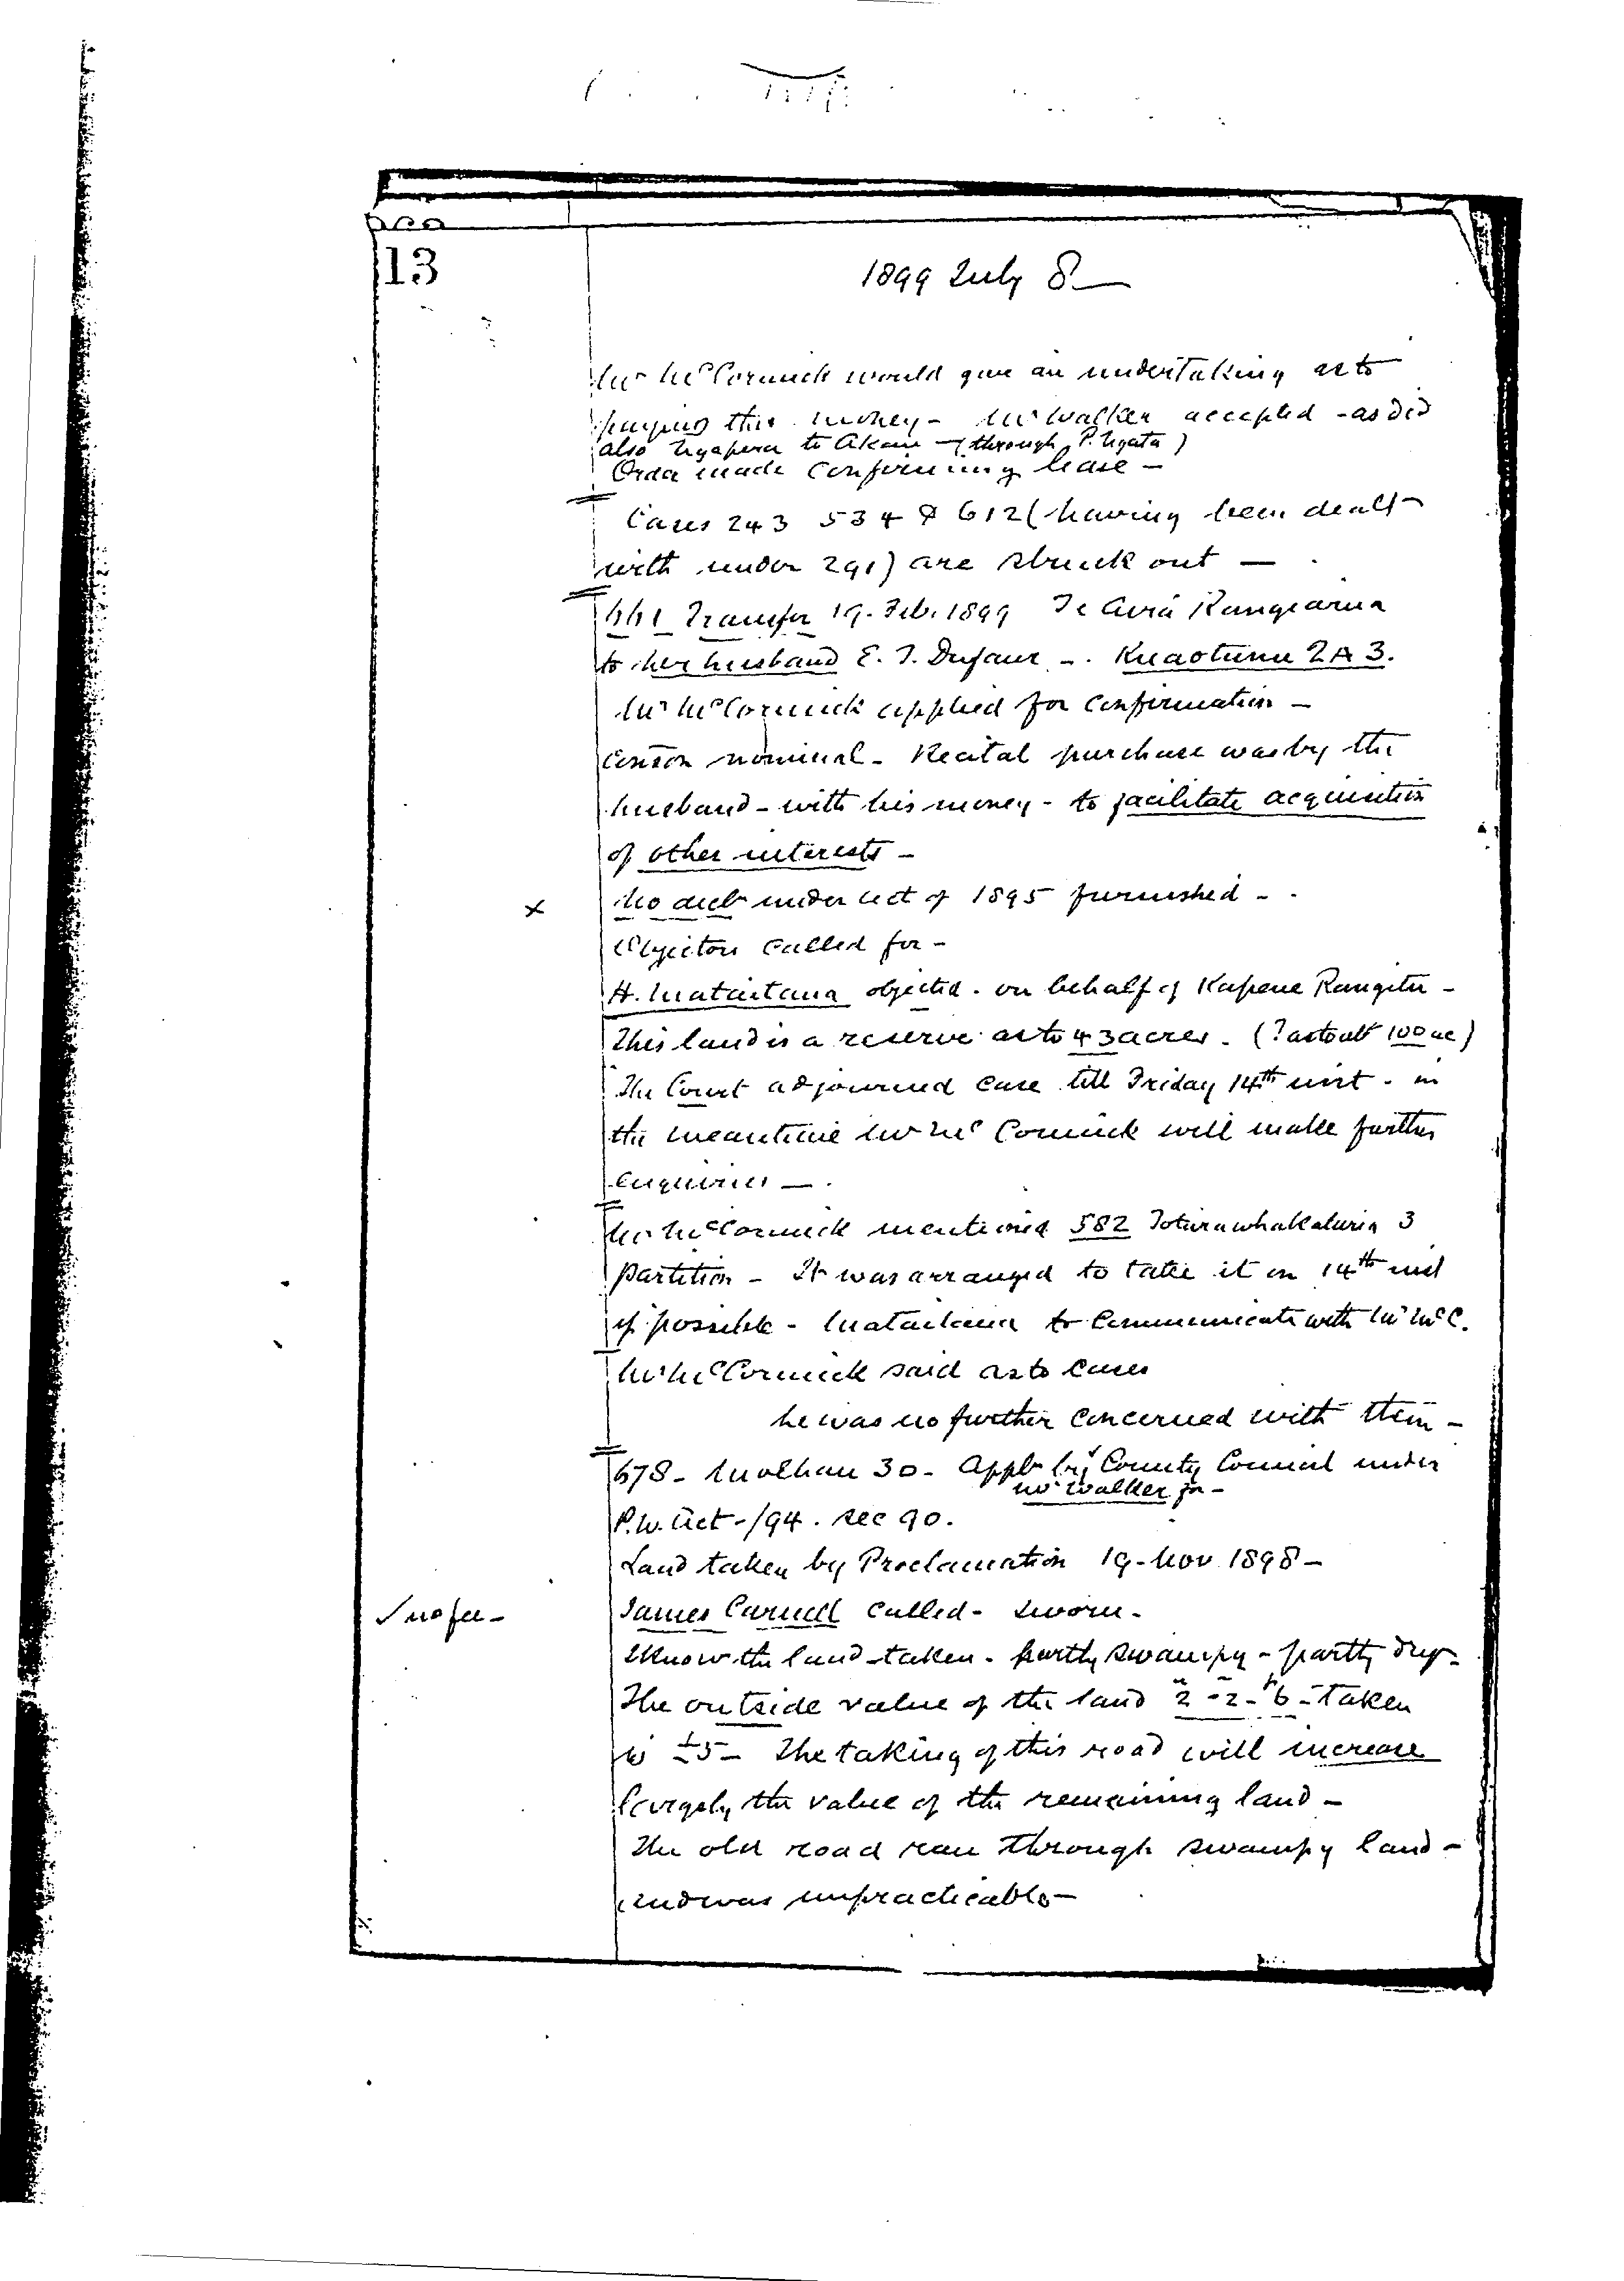 113
1899 July 8 —
Mr McCormick would give an undertaking as to
paying this money - Mr Walker accepted - as did
also Ngapera te Akau - (through P. Ngata)
Order made confirming lease -
Cases 243 534 & 612 (having been dealt
with under 291) are struck out —
661 Transfer 19. Feb. 1899 Te Rangiarua
to her husband E. T. Dufaur - . Kuaotunu 2A3.
Mr McCormick applied for confirmation -
Conson nominal - Recital purchase was by the
husband - with his money - to facilitate acquisition
of other interests -
x No decln under act of 1895 furnished -
Objectors called for -
H. Mataitaua objected . on behalf of Kapene Rangitu -
This land is a reserve as to 43 acres . (? as to abt 100 ac)
The Court adjourned case till Friday 14th inst . in
the meantime Mr McCormick will make further
enquiries - .
Mr McCormick mentioned 582 3
Partition - It was arranged to take it on 14th inst
if possible - Mataitaua to communicate with Mr McC.
Mr McCormick said as to cases
he was no further concerned with them -
678 - 30 - Appln by County Council under
Mr Walker for -
P.W. Act - /94 . sec 90.
Land taken by Proclamation 19 - Nov 1898 -
✓ no fee - James Carnell called - sworn -
I know the land taken - partly swampy - partly dry -
The outside value of the land 2 - 2 - 6 - taken
is £5 - The taking of this road will increase
largely the value of the remaining land -
The old road ran through swampy land -
and was impracticable -